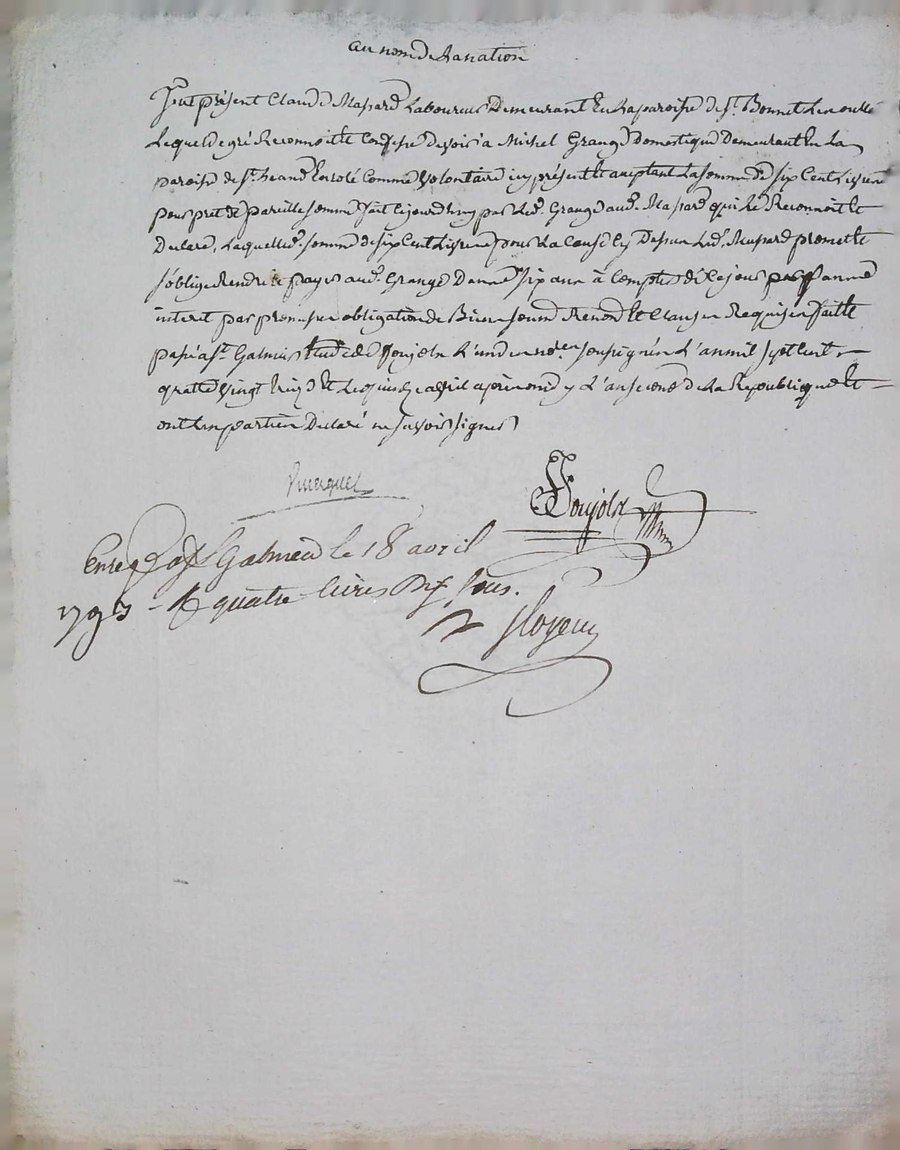 au nom de La nation
fut présent Claude Massard Laboureur Demeurant En La paroisse de St. Bonnet Les oulle
Lequel de gré Reconnoit et Confesse devoir à Michel Grange Domestique Demeurant En La
paroisse de St. heand Enrolé Comme Volontaire icy présent et acceptant La somme de six Cent Livres
pour pret de pareille somme fait Cejourd'huy par Led. Grange aud. Massard qui Le Reconnoit et
Declare, Laquelle d. somme de six Cent Livres pour La Cause Cy Dessus Led. Massard promet et
s'oblige Rendre et payer aud. Grange Dans six ans à Compter de Ce jour par année
interet par promesse obligation de Biens soum. Renon. et Clauses Requises fait et
passé a St. Galmier Etude de Poujolx L'un des nores. soussignés L'an mil sept Cent
quatre Vingt treize et Le quinze avril après midy L'an second de La République et
ont Les parties Declaré ne savoir signer
Poujolx
Enreg. a St Galmier le 18 avril
1793 - R quatre livres dix sous.